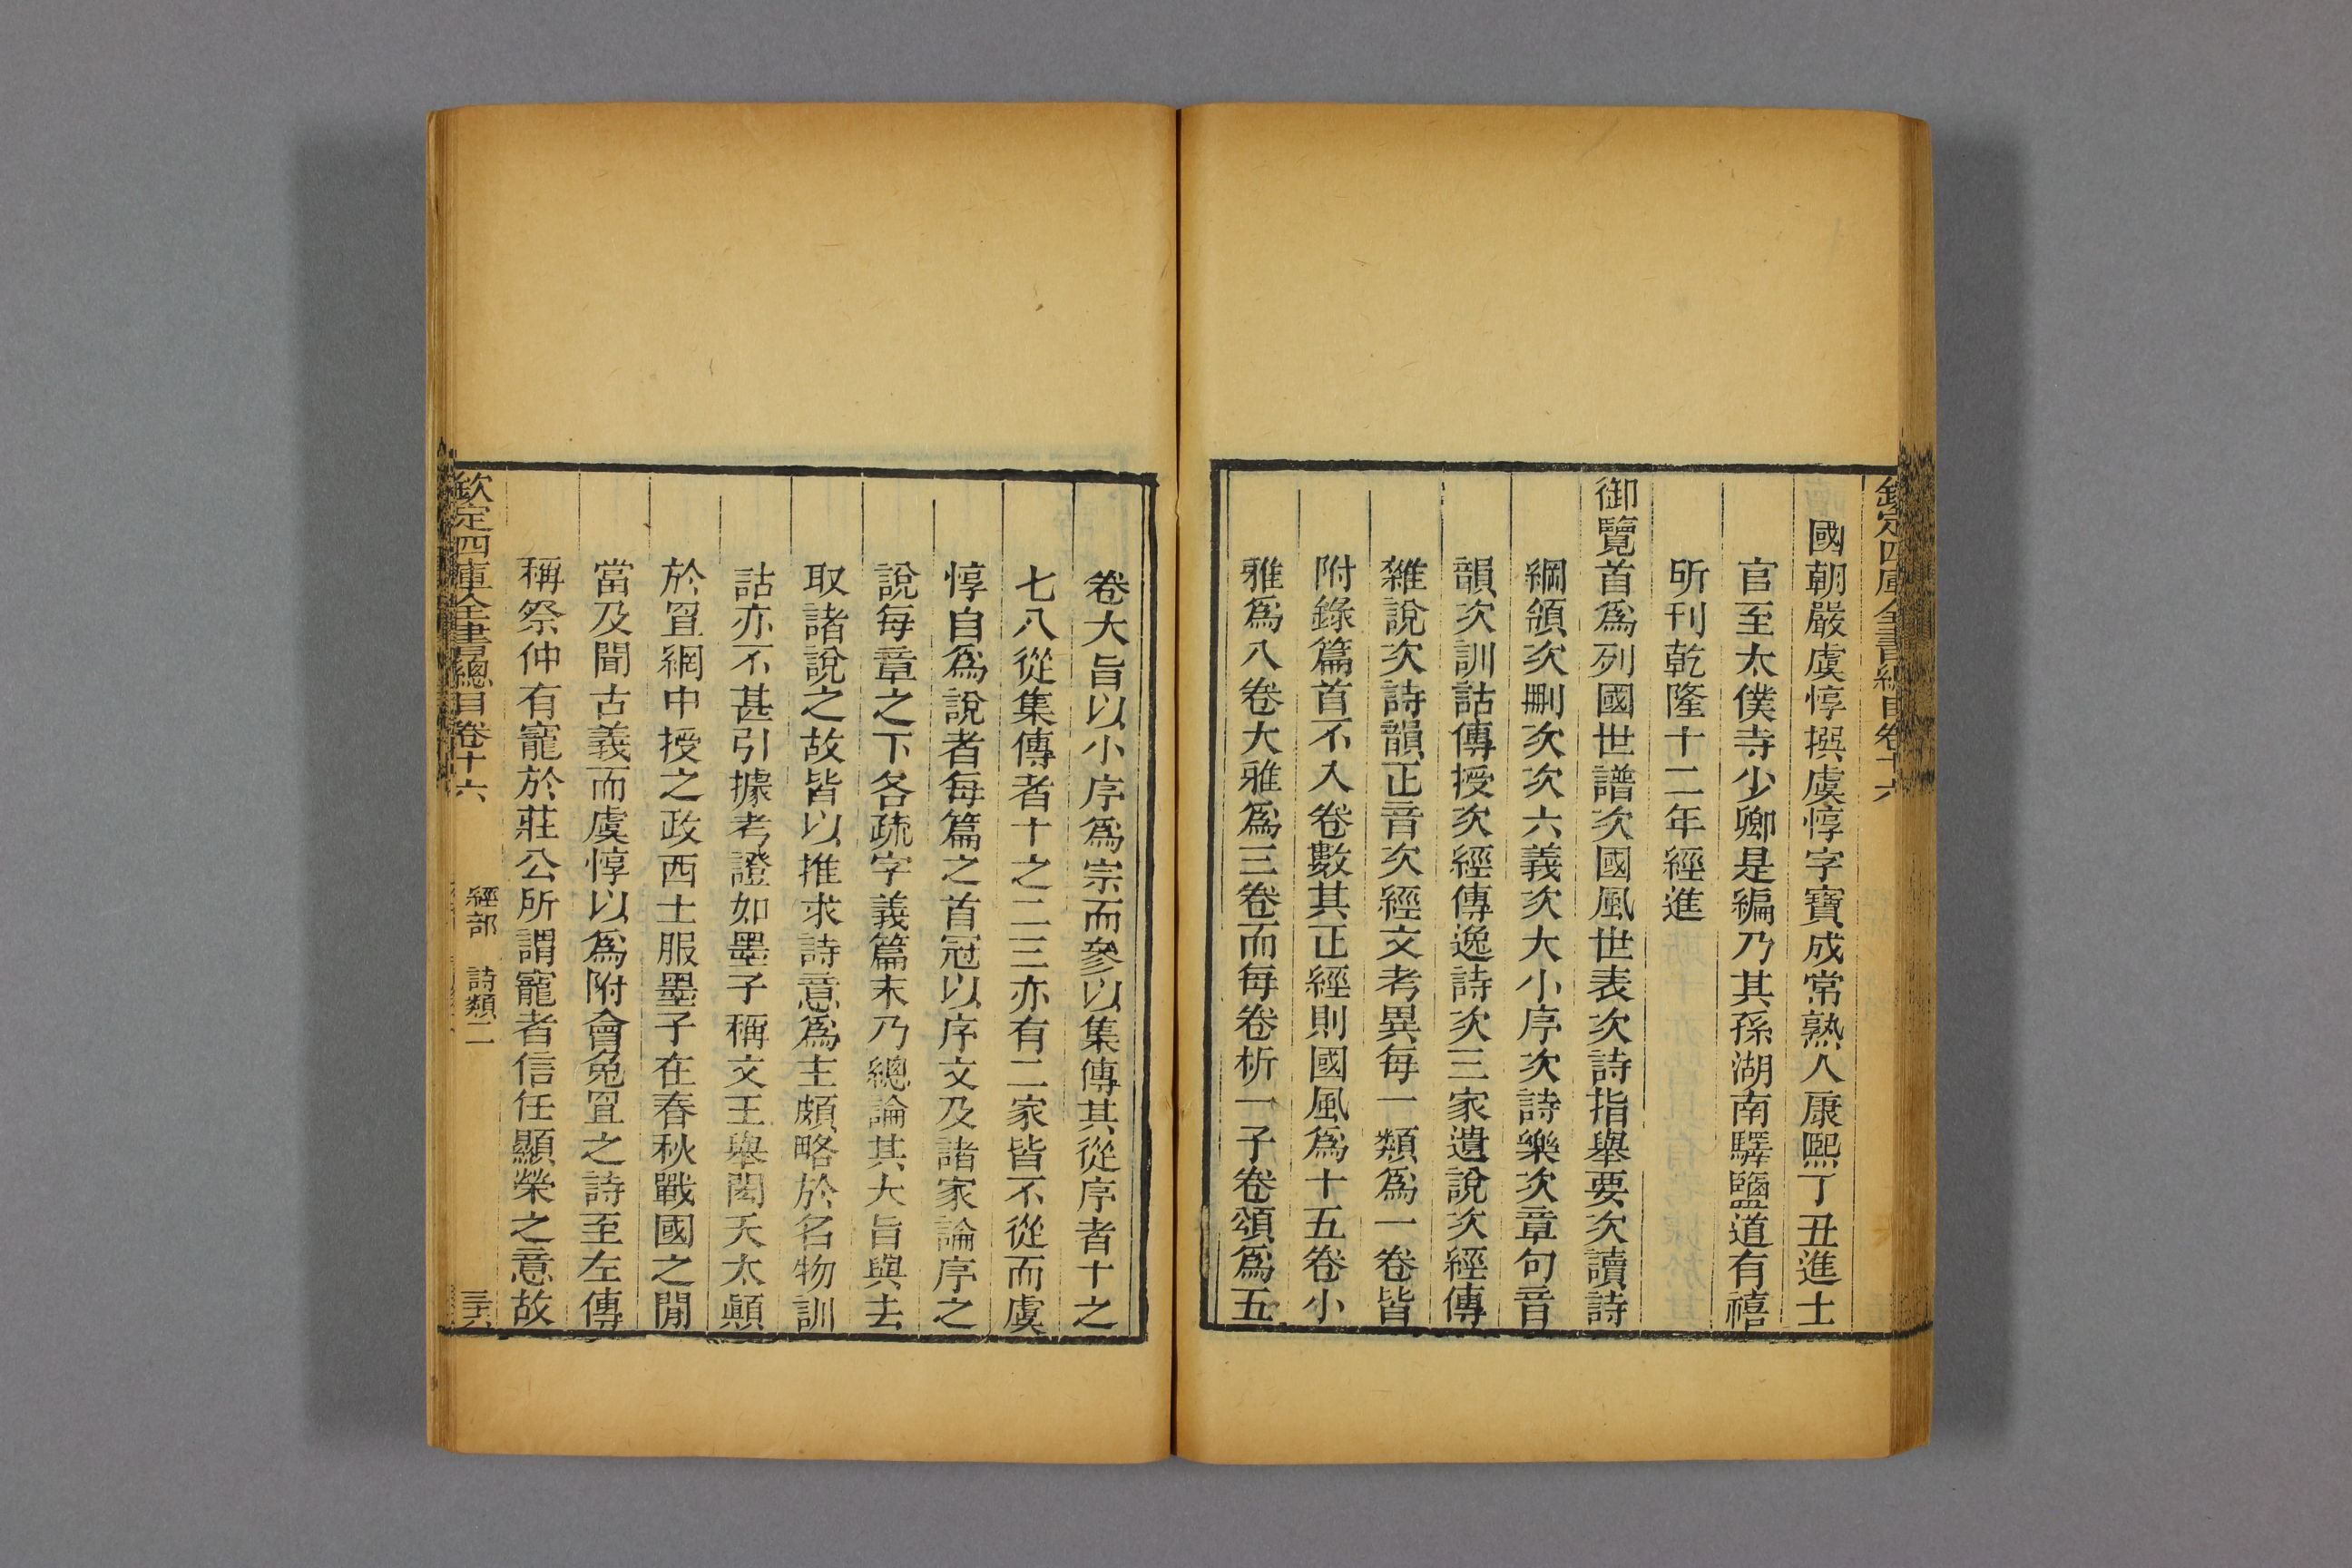 欽定四庫全書總目卷十六
國朝嚴虞惇撰虞惇字寶成常熟人康熙丁丑進士
官至太僕寺少卿是編乃其孫湖南驛鹽道有禧
所刊乾隆十二年經進
御覽首爲列國世譜次國風世表次詩指舉要次讀詩
綱領次刪次次六義次大小序次詩樂次章句音
韻次訓詁傳授次經傳逸詩次三家遺說次經傳
雜說次詩韻正音次經文考異每一類爲一卷皆
附錄篇首不入卷數其正經則國風爲十五卷小
雅爲八卷大雅爲三卷而每卷析一子卷頌爲五
卷大旨以小序爲宗而參以集傳其從序者十之
七八從集傳者十之二三亦有二家皆不從而虞
惇自爲說者每篇之首冠以序文及諸家論序之
說每章之下各疏字義篇末乃總論其大旨與去
取諸說之故皆以推求詩意爲主頗略於名物訓
詁亦不甚引據考證如墨子稱文王舉閎夭太顚
於罝網中授之政西土服墨子在春秋戰國之閒
當及聞古義而虞惇以爲附會兔罝之詩至左傳
稱祭仲有寵於莊公所謂寵者信任顯榮之意故
欽定四庫全書總目卷十六 經部 詩類二 三六